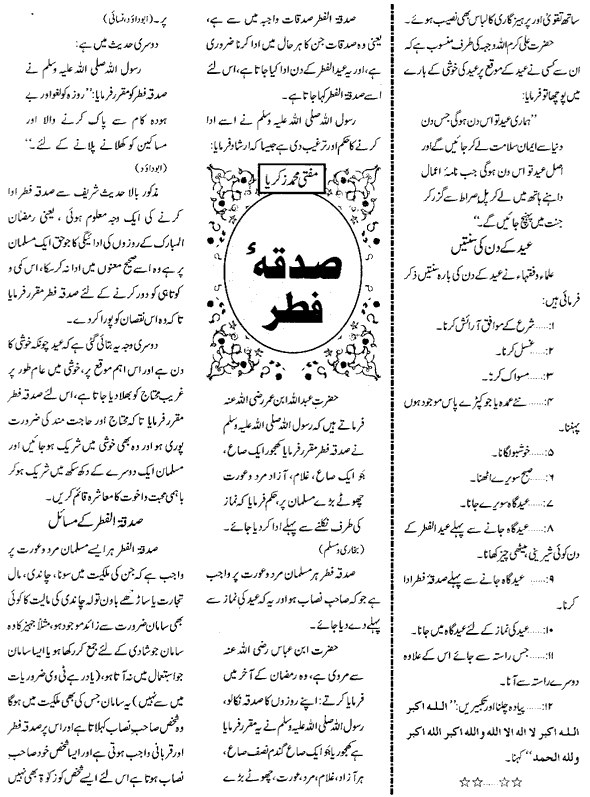 ساتھ تقویٰ اور پرہیز گاری کا لباس بھی نصیب ہوئے۔
حضرت علی کرم اللہ وجہہ کی طرف منسوب ہے کہ
ان سے کسی نے عید کے موقع پر عید کی خوشی کے بارے
میں پوچھا تو فرمایا:
”ہماری عید تو اس دن ہوگی جس دن
دنیا سے ایمان سلامت لے کر جائیں گے اور
اصل عید تو اس دن ہوگی جب نامۂ اعمال
داہنے ہاتھ میں لے کر پل صراط سے گزر کر
جنت میں پہنچ جائیں گے۔“
عید کے دن کی سنتیں
علماء و فقہاء نے عید کے دن کی بارہ سنتیں ذکر
فرمائی ہیں:
۱:..... شرع کے موافق آرائش کرنا۔
۲:..... غسل کرنا۔
۳:..... مسواک کرنا۔
۴:..... نئے عمدہ یا جو کپڑے پاس موجود ہوں
پہننا۔
۵:..... خوشبو لگانا۔
۶:..... صبح سویرے اٹھنا۔
۷:..... عید گاہ سویرے جانا۔
۸:..... عید گاہ جانے سے پہلے عید الفطر کے
دن کوئی شیرینی، میٹھی چیز کھانا۔
۹:..... عید گاہ جانے سے پہلے صدقۂ فطر ادا
کرنا۔
۱۰:..... عید کی نماز کے لئے عید گاہ میں جانا۔
۱۱:..... جس راستہ سے جائے اس کے علاوہ
دوسرے راستہ سے آنا۔
۱۲:..... پیادہ چلنا اور تکبیریں: ”اللہ اکبر
اللہ اکبر لا الہ الا اللہ واللہ اکبر اللہ اکبر
وللہ الحمد“ کہنا۔
☆☆.....☆☆
صدقۃ الفطر صدقات واجبہ میں سے ہے،
یعنی وہ صدقات جن کا ہر حال میں ادا کرنا ضروری
ہے، اور یہ عید الفطر کے دن ادا کیا جاتا ہے، اس لئے
اسے صدقۃ الفطر کہا جاتا ہے۔
رسول اللہ صلی اللہ علیہ وسلم نے اسے ادا
کرنے کا حکم اور ترغیب دی ہے جیسا کہ ارشاد فرمایا:
مفتی محمد زکریا
صدقۂ
فطر
حضرت عبداللہ ابن عمر رضی اللہ عنہ
فرماتے ہیں کہ رسول اللہ صلی اللہ علیہ وسلم
نے صدقۂ فطر مقرر فرمایا کھجور ایک صاع،
جَو ایک صاع، غلام، آزاد مرد و عورت
چھوٹے بڑے مسلمان پر، حکم فرمایا کہ نماز
کی طرف نکلنے سے پہلے ادا کر دیا جائے۔
(بخاری و مسلم)
صدقۃ الفطر ہر مسلمان مرد و عورت پر واجب
ہے جو کہ صاحب نصاب ہو اور یہ کہ عید کی نماز سے
پہلے دے دیا جائے۔
حضرت ابن عباس رضی اللہ عنہ
سے مروی ہے، وہ رمضان کے آخر میں
فرماتے تھے: اپنے روزوں کا صدقہ نکالو،
رسول اللہ صلی اللہ علیہ وسلم نے یہ مقرر فرمایا
ہے کھجور یا جَو ایک صاع گندم نصف صاع،
ہر آزاد، غلام، مرد، عورت، چھوٹے بڑے
پر۔ (ابوداؤد، نسائی)
دوسری حدیث میں ہے:
رسول اللہ صلی اللہ علیہ وسلم نے
صدقۂ فطر کو مقرر فرمایا: ”روزہ کو لغو اور بے
ہودہ کام سے پاک کرنے والا اور
مساکین کو کھلانے پلانے کے لئے۔“
(ابوداؤد)
مذکور بالا حدیث شریف سے صدقۂ فطر ادا
کرنے کی ایک وجہ معلوم ہوئی، یعنی رمضان
المبارک کے روزوں کی ادائیگی کا جو حق ایک مسلمان
پر ہے وہ اسے صحیح معنوں میں ادا نہ کر سکا، اس کمی و
کوتاہی کو دور کرنے کے لئے صدقۂ فطر مقرر فرمایا
تاکہ وہ اس نقصان کو پورا کر دے۔
دوسری وجہ یہ بتائی گئی ہے کہ عید چونکہ خوشی کا
دن ہے اور اس اہم موقع پر، خوشی میں عام طور پر
غریب محتاج کو بھلا دیا جاتا ہے، اس لئے صدقۂ فطر
مقرر فرمایا تاکہ محتاج اور حاجت مند کی ضرورت
پوری ہو اور وہ بھی خوشی میں شریک ہو جائیں اور
مسلمان ایک دوسرے کے دکھ سکھ میں شریک ہو کر
باہمی محبت و اخوت کا معاشرہ قائم کریں۔
صدقۃ الفطر کے مسائل
صدقۃ الفطر ہر ایسے مسلمان مرد و عورت پر
واجب ہے کہ جن کی ملکیت میں سونا، چاندی، مال
تجارت یا ساڑھے باون تولہ چاندی کی مالیت کا کوئی
بھی سامان ضرورت سے زائد موجود ہو، مثلاً جہیز کا وہ
سامان جو شادی کے لئے جمع کر رکھا ہو یا ایسا سامان
جو استعمال میں نہ آتا ہو، (یاد رہے ٹی وی ضروریات
میں سے نہیں) یہ سامان جس کی بھی ملکیت میں ہوگا
وہ شخص صاحب نصاب کہلاتا ہے اور اس پر صدقۂ فطر
اور قربانی واجب ہوتی ہے اور ایسا شخص خود صاحب
نصاب ہوتا ہے اس لئے ایسے شخص کو زکوٰۃ بھی نہیں